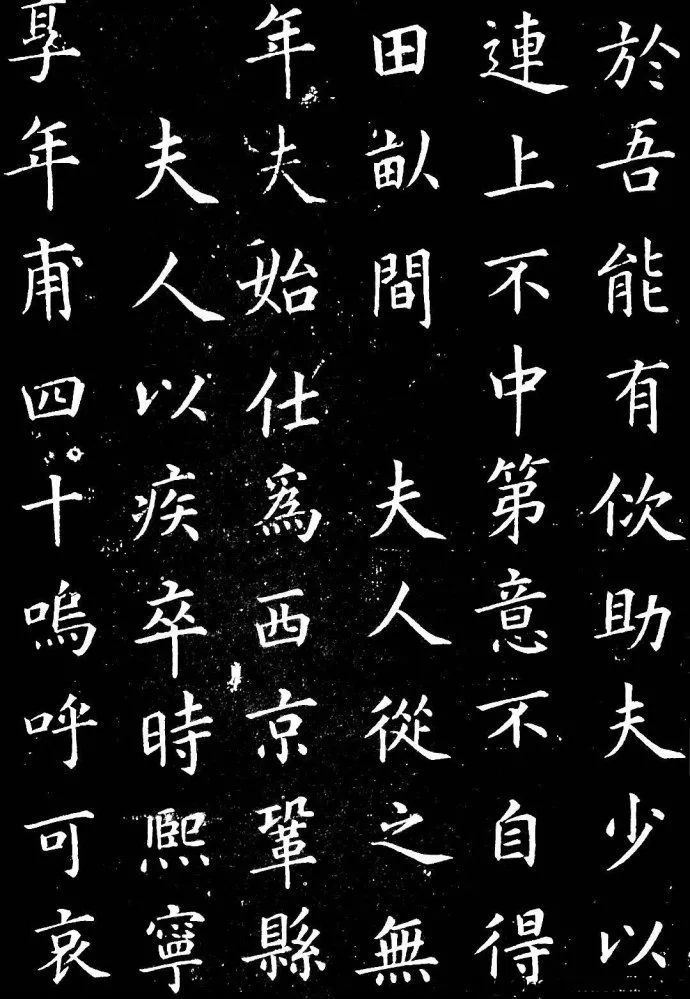 於吾能有佽助夫少以
連上不中第意不自得
田畝間　夫人從之無
年夫始仕爲西京鞏縣
　夫人以疾卒時熙寧
享年甫四十嗚呼可哀